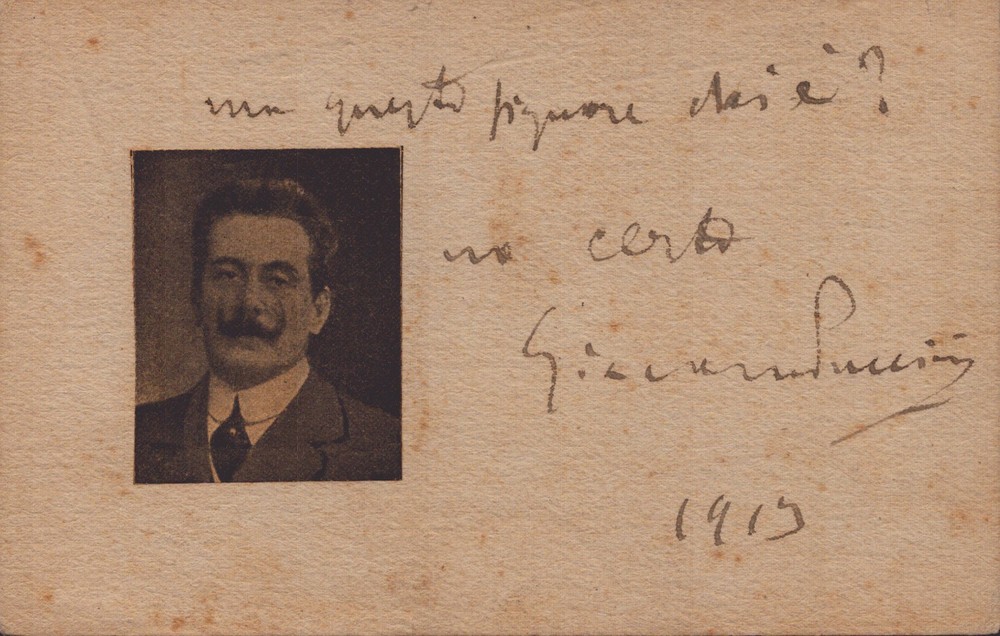 ma questo signore chi è?
no certo
Giacomo Puccini
1913